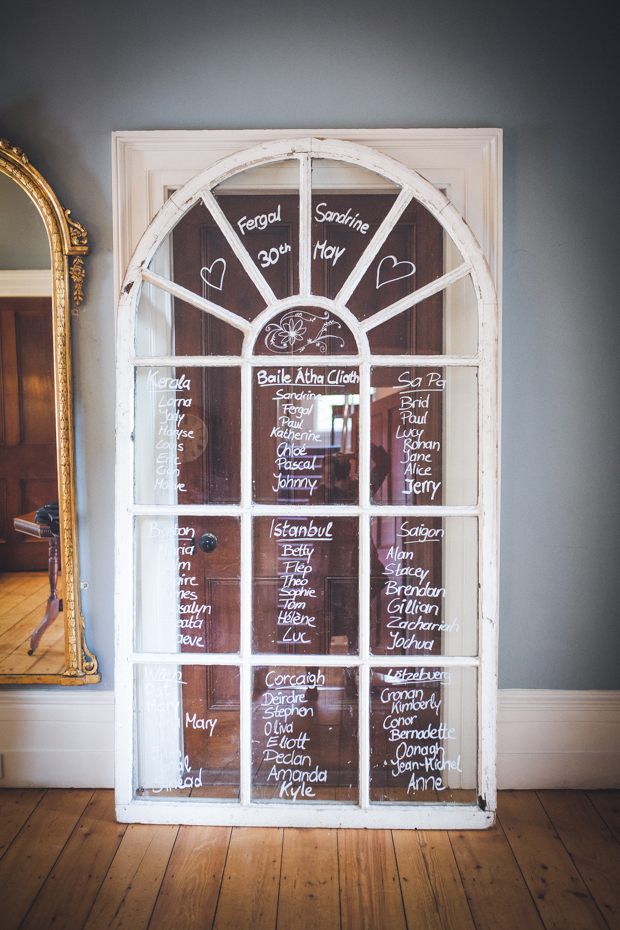 Fergal Sandrine
30th May
Kerala
Lorna
Jody
Maryse
Louis
Eric
Baile Átha Cliath
Sandrine
Fergal
Paul
Katherine
Chloé
Pascal
Johnny
Sa Pa
Bríd
Paul
Lucy
Rohan
Jane
Alice
Jerry
Boston
Istanbul
Betty
Flep
Theo
Sophie
Tom
Hélène
Luc
Saigon
Alan
Stacey
Brendan
Gillian
Zachariah
Yochua
Wien
Mary
Mary
Sinéad
Corcaigh
Deirdre
Stephen
Oliva
Eliott
Declan
Amanda
Kyle
Lötzebuerg
Cronan
Kimberly
Conor
Bernadette
Oonagh
Jean-Michel
Anne